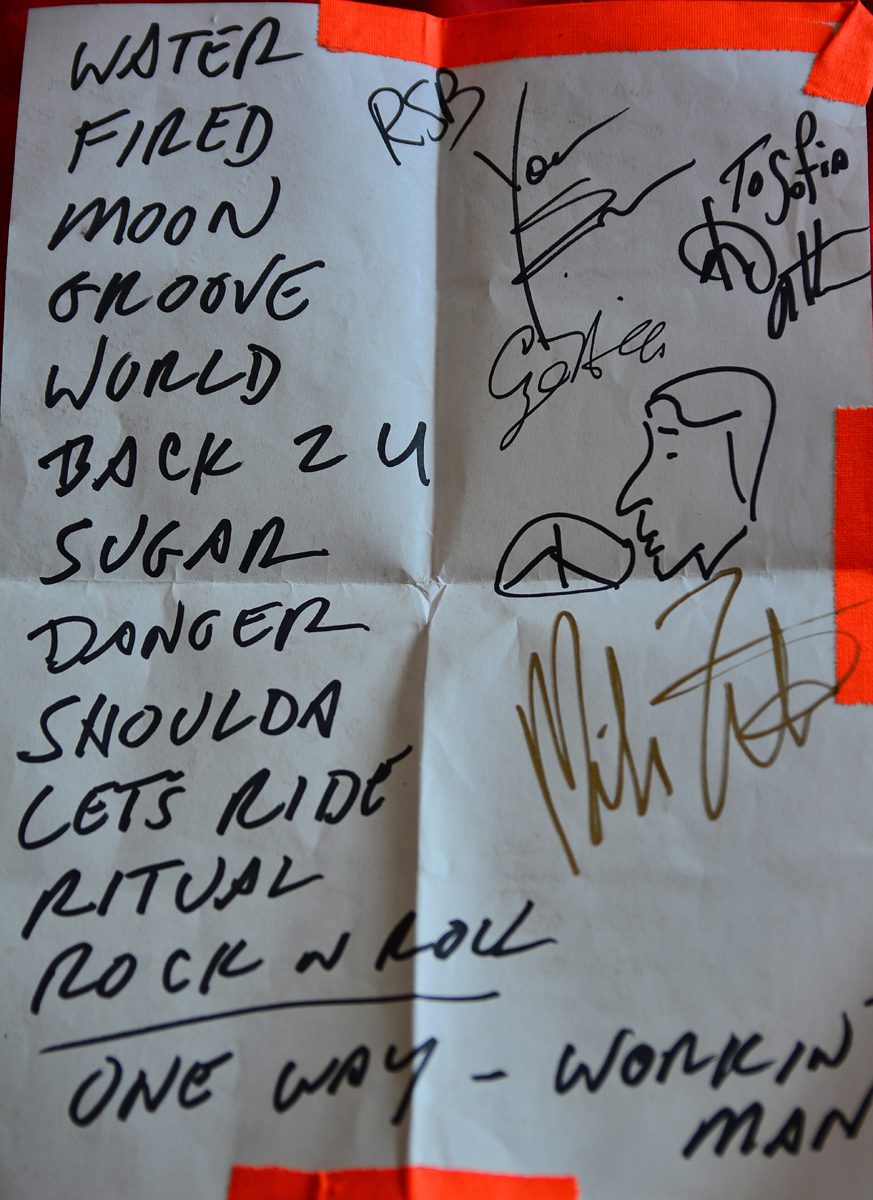 WATER
FIRED
MOON
GROOVE
WORLD
BACK 2 U
SUGAR
DANGER
SHOULDA
LETS RIDE
RITUAL
ROCK N ROLL
ONE WAY - WORKIN'
MAN
RSB
You
To Sofia